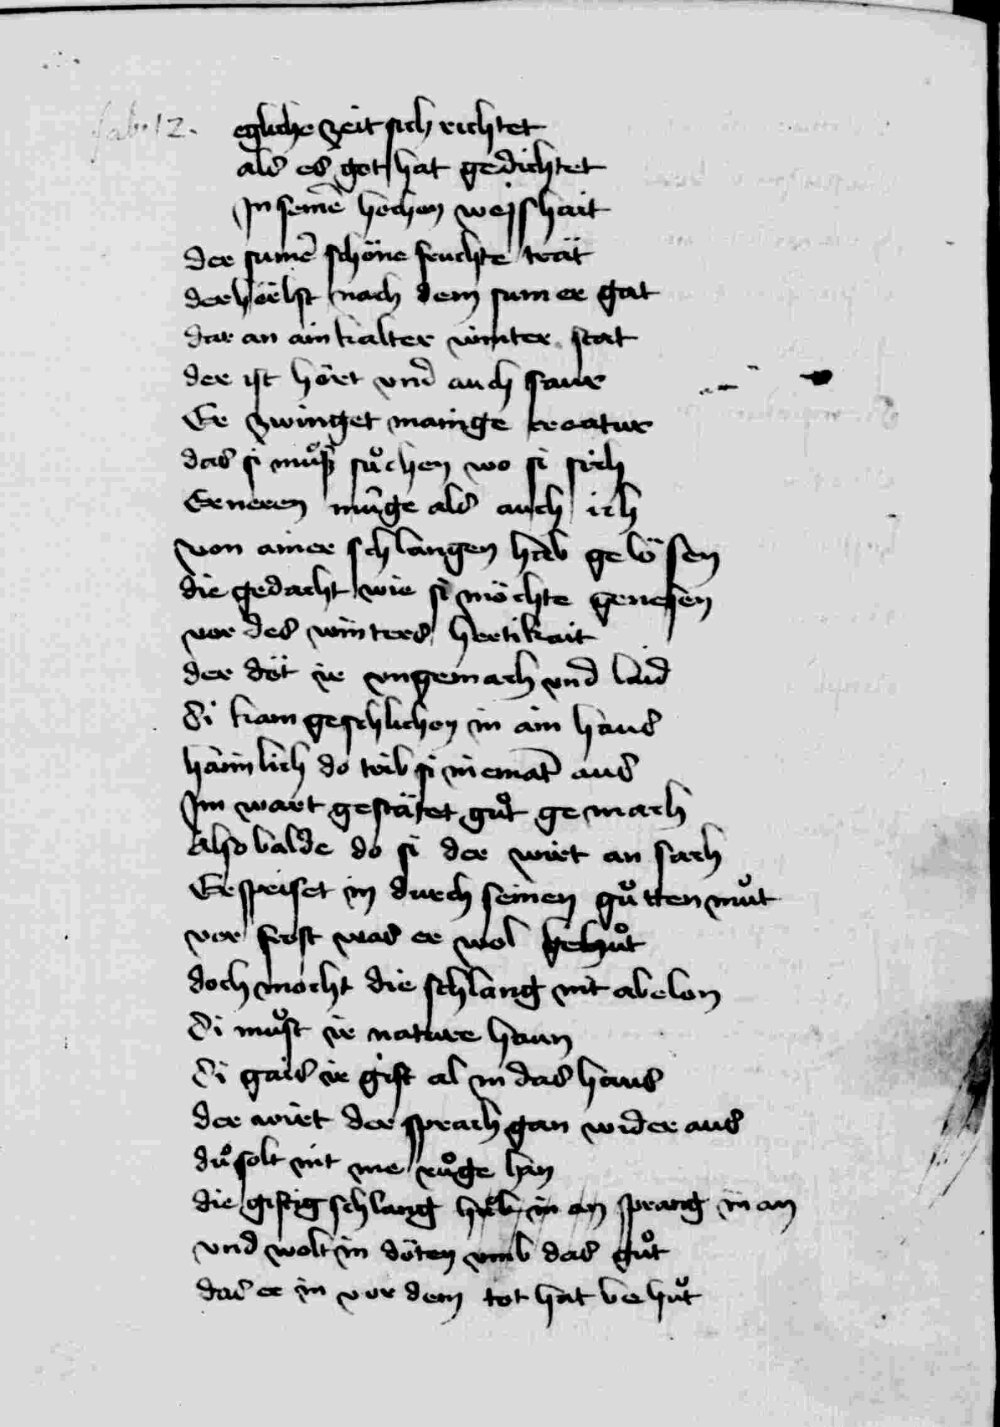 fab. 12.
egliche zeit sich richtet
als es got hat gedichtet
In seinē hochen weishait
der sumē schöne fruchte trät
der hörbst nach dem sumer gat
dar an ain kalter winter stat
der ist hört vnd auch saur
Er zwinget mainge creatur
das si muͦß suͦchen wo si sich
Erneren müge als auch ich
von ainer schlangen hab gelösen
die gedacht wie si möchte genesen
vor des winters hertikait
der döt ir vngemach vnd laid
Si kam geschlichen in ain haus
haimlich do traib si niemāt aus
Im wart gestätet guͦt gemach
Also balde do si der wirt an sach
Er speiset in durch seinen guͦtten muͦt
vor frost was er wol behuͦt
doch mocht die schlang nit abelon
Si muͦst ir nature haun
Si gais ir gift al in das haus
der wirt der sprach gan wider aus
duͦ solt nit me ruͦge han
die giftig schlang in an sprang in an
vnd wolt in döten vmb das guͦt
das er in vor dem tot hat behuͦt